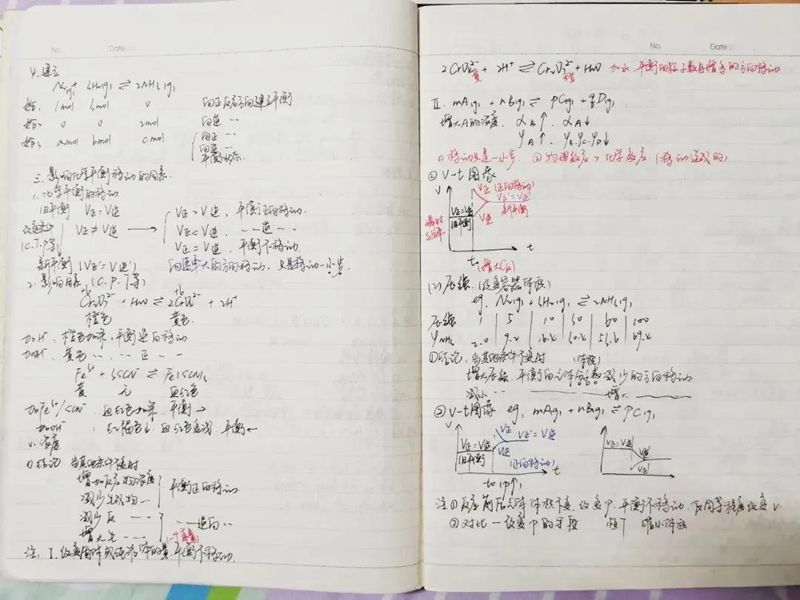 No. Date:
4. 建立
N₂(g) + 3H₂(g) ⇌ 2NH₃(g)
始₁ 1mol 3mol 0 向正反应方向建立平衡
始₂ 0 0 2mol 向逆 ‥
始₃ amol bmol cmol 向正 ‥
向逆 ‥
平衡状态
三. 影响化学平衡移动的因素
1. 化学平衡的移动
旧平衡 V正=V逆
改变条件 V正≠V逆 → V正>V逆, 平衡正向移动
(C.T.P等) V正<V逆, ‥ 逆 ‥
V正=V逆, 平衡不移动
新平衡 (V正'=V逆') 向速率大的方向移动
2. 影响因素 (C.P.T等)
Cr₂O₇²⁻ + H₂O ⇌ 2CrO₄²⁻ + 2H⁺
橙色 黄色
加H⁺, 橙色加深, 平衡逆向移动
加OH⁻, 黄色 ‥ ‥ 正 ‥
Fe³⁺ + 3SCN⁻ ⇌ Fe(SCN)₃
黄 无 血红色
加Fe³⁺/SCN⁻, 血红色加深, 平衡→
加OH⁻, 红褐色↓ 血红色变浅, 平衡←
(1). 浓度
①结论 当其他条件不变时
增加反应物浓度
减少生成物 ‥ 平衡正向移动
减少反 ‥
增大生 ‥ ‥ 逆向 ‥
注: Ⅰ. 改变固体或纯液体的量, 平衡不移动
No. Date:
2CrO₄²⁻ + 2H⁺ ⇌ Cr₂O₇²⁻ + H₂O 加水, 平衡向粒子数目增多的方向移动
黄 橙
Ⅱ. mA(g) + nB(g) ⇌ pC(g) + qD(g)
增大A的浓度, αB↑, αA↓
φA↑, φB.φC.φD↓
①移动只是一小步 ②物理效应>化学效应 (移动造成的)
②V-t图象
V V正 (正向移动)
V正=V逆 V正'=V逆'
旧平衡 新平衡
V逆
t
t₁ (增大CA)
(2) 压强 (改变容器体积)
eg. N₂(g) + 3H₂(g) ⇌ 2NH₃(g)
压强 1 5 10 30 60 100
φNH₃ 2.0 9.2 16.4 35.5 53.6 69.4
①结论, 当其他条件不变时 (体积)
增大压强, 平衡向气体分子数减少的方向移动
减小 ‥ 增 ‥
②V-t图象 eg, mA(g) + nB(g) ⇌ pC(g)
V V正 V正'=V逆'
V正=V逆
旧平衡 V逆
(正向移动) t
t₀ (P↑)
V正=V逆
V逆'
V正'
注①反应前后气体体积不变, 改变P, 平衡不移动, 反同等程度改变V
②对比 一改变P的手段 恒T 缩小体积